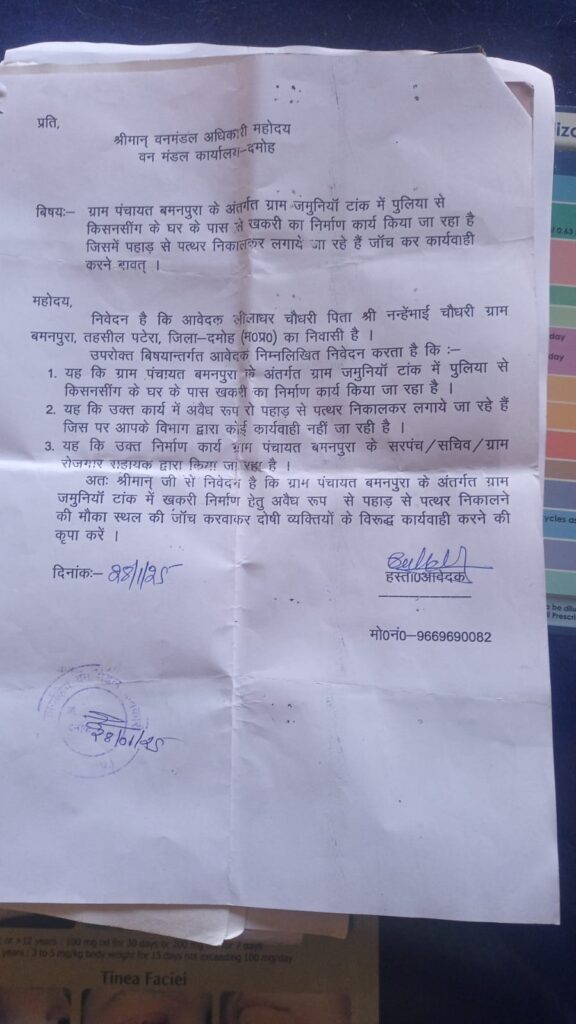 प्रति,
श्रीमान् वनमंडल अधिकारी महोदय
वन मंडल कार्यालय–दमोह
बिषयः– ग्राम पंचायत बमनपुरा के अंतर्गत ग्राम जमुनियाँ टांक में पुलिया से
किसनसींग के घर के पास से खकरी का निर्माण कार्य किया जा रहा है
जिसमें पहाड़ से पत्थर निकालकर लगाये जा रहे हैं जॉच कर कार्यवाही
करने बावत् ।
महोदय,
निवेदन है कि आवेदक लीलाधर चौधरी पिता श्री नन्हेंभाई चौधरी ग्राम
बमनपुरा, तहसील पटेरा, जिला–दमोह (म०प्र०) का निवासी है ।
उपरोक्त बिषयान्तर्गत आवेदक निम्नलिखित निवेदन करता है कि :–
1. यह कि ग्राम पंचायत बमनपुरा के अंतर्गत ग्राम जमुनियाँ टांक में पुलिया से
किसनसींग के घर के पास खकरी का निर्माण कार्य किया जा रहा है ।
2. यह कि उक्त कार्य में अवैध रूप से पहाड़ से पत्थर निकालकर लगाये जा रहे हैं
जिस पर आपके विभाग द्वारा कोई कार्यवाही नहीं जा रही है ।
3. यह कि उक्त निर्माण कार्य ग्राम पंचायत बमनपुरा के सरपंच/सचिव/ग्राम
रोजगार सहायक द्वारा किया जा रहा है ।
अतः श्रीमान् जी से निवेदन है कि ग्राम पंचायत बमनपुरा के अंतर्गत ग्राम
जमुनियाँ टांक में खकरी निर्माण हेतु अवैध रूप से पहाड़ से पत्थर निकालने
की मौका स्थल की जॉच करवाकर दोषी व्यक्तियों के विरूद्ध कार्यवाही करने की
कृपा करें ।
दिनांकः– 28/1/25
हस्ता०आवेदक
मो०नं०–9669690082
28/01/25
day
ycles as
or >12 years : 100 mg od for 30 days or 200 mg for 7 days
years : 3 to 5 mg/kg body weight for 15 days not exceeding 100 mg/day
Tinea Faciei